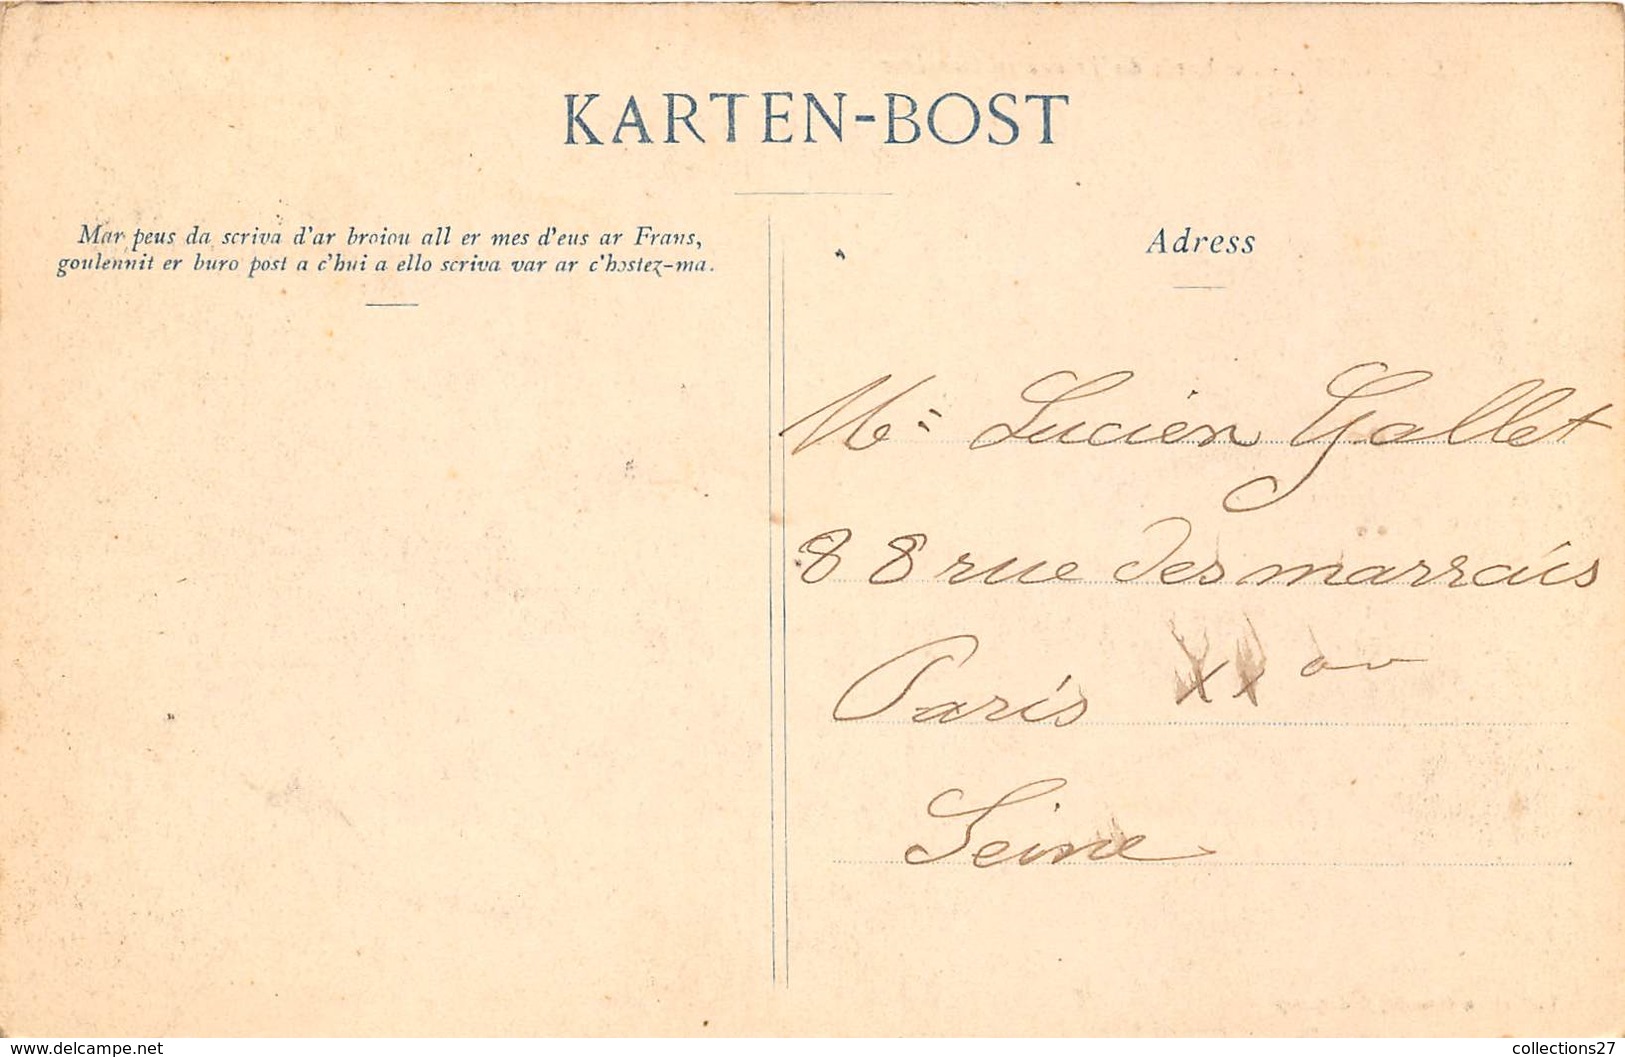 KARTEN-BOST
Mar peus da scriva d'ar broiou all er mes d'eus ar Frans,
goulennit er buro post a c'hui a ello scriva var ar c'hostez-ma.
Adress
Lucien Gallet
88 rue des marrais
Paris XX
Seine
www.delcampe.net
collections27